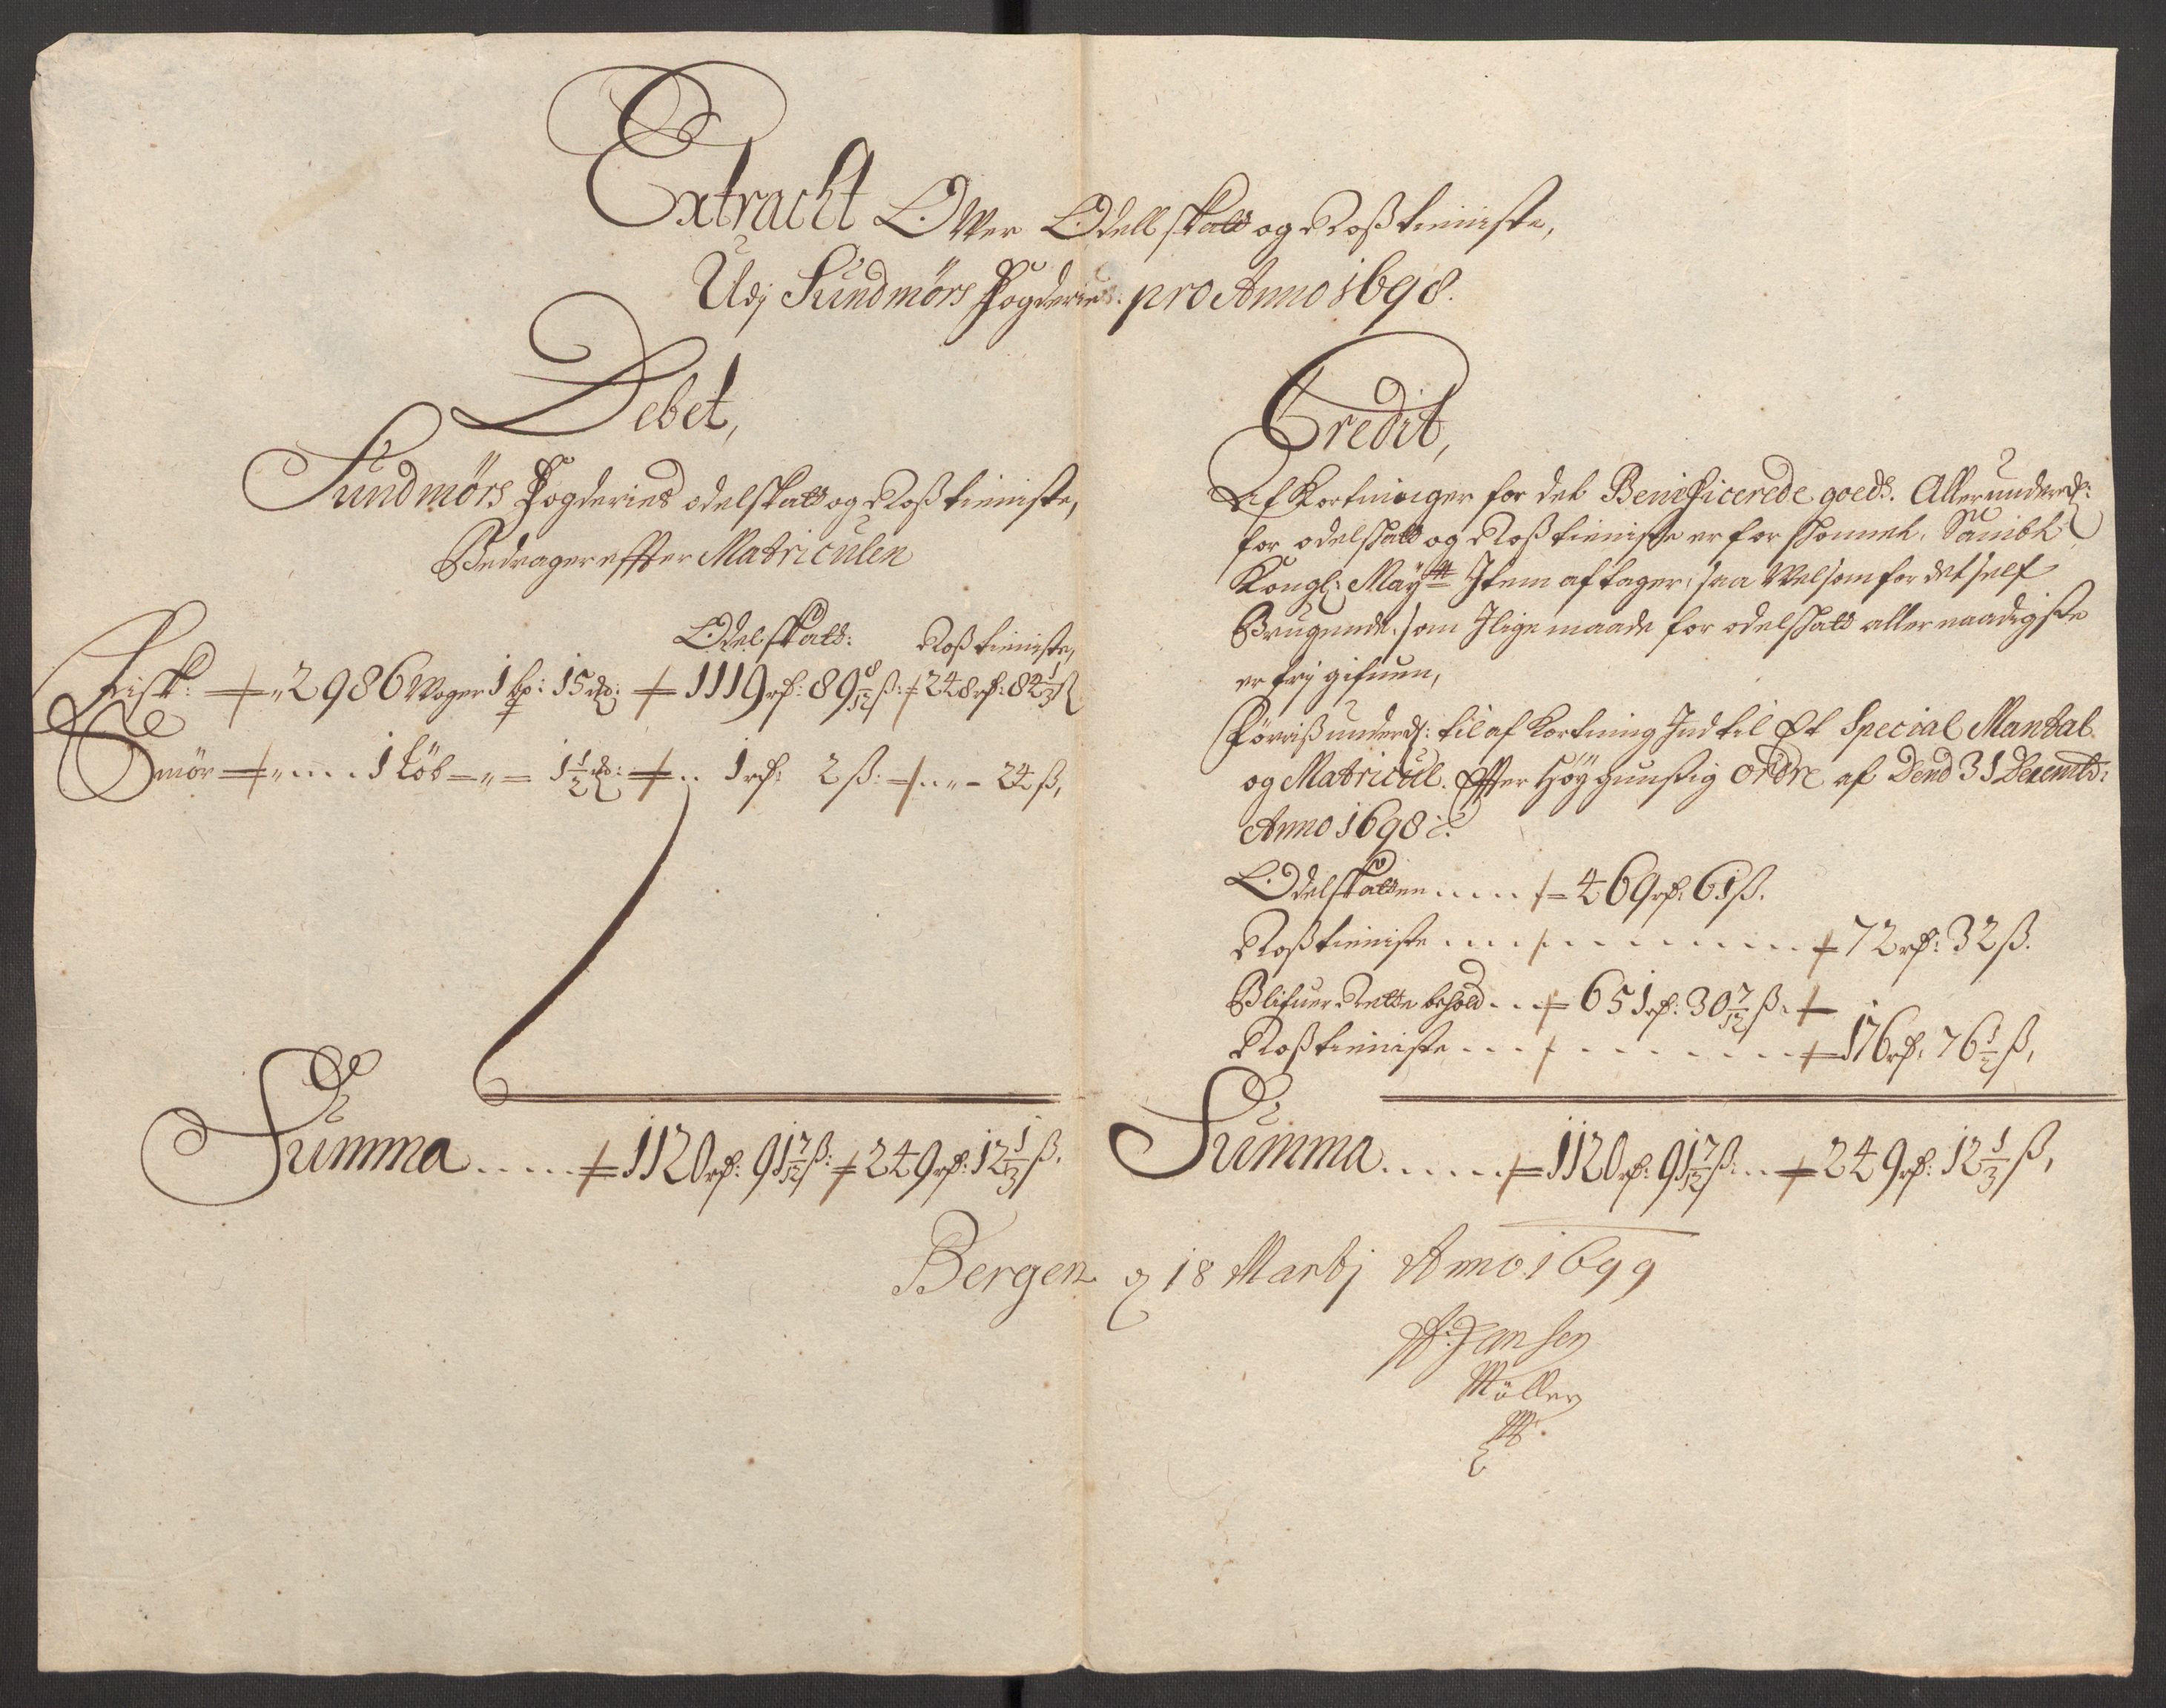 Extracht Over Odellskatt og Rosstienniste,
Udj Sundmørs Fogderie pro Anno 1698.
Debet,
Sundmørs Fogderies odelskatt og Rosstienniste,
Bedrager effter Matriculen
Odelskatt: Rosstienniste,
Fisk: 2986 Woger 1 bp: 15 1119 rd: 89 8/12 ß: 248 rd: 84 1/3 ß
Smør 1 Löb 1 1/2 1 rd: 2 ß: 24 ß,
Summa 1120 rd: 91 7/12 ß: 249 rd: 12 1/3 ß.
Credit,
Af Kortninger for det Benificerede goeds. Allerunderd:
for odelskatt og Rosstienniste er forskonnet. Sambt
Kongl: Maytt Item aftager, saa Velsom for det self
Brugende, som Jlige maade for odelskatt allernaadigste
er frj gifuen,
Förviss underd: til af Kortning Ind til Et Special Mantal
og Matricul. Effter Höygunstig Ordre af Dend 31 Decembr:
Anno 1698
Odelskatten 469 rd: 61 ß.
Rosstienniste 72 rd: 32 ß.
Blifuer Rette behold 651 rd: 30 7/12 ß.
Rosstienniste 176 rd: 76 1/3 ß,
Summa 1120 rd: 91 7/12 ß: 249 rd: 12 1/3 ß,
Bergen d 18 Martj Anno 1699
Jansen
Möller